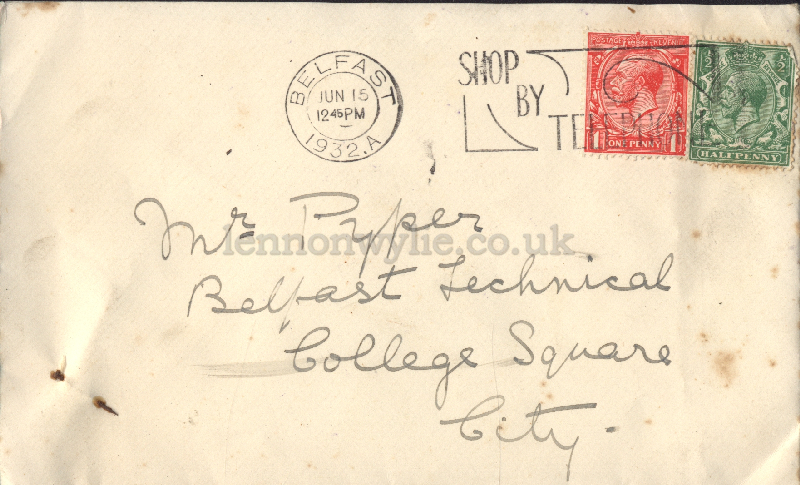 BELFAST
JUN 15
12 45 PM
1932.A
SHOP
BY
POSTAGE REVENUE
1 ONE PENNY 1
½ ½
HALFPENNY
Mr Pyper
lennonwylie.co.uk
Belfast Technical
College Square
City.